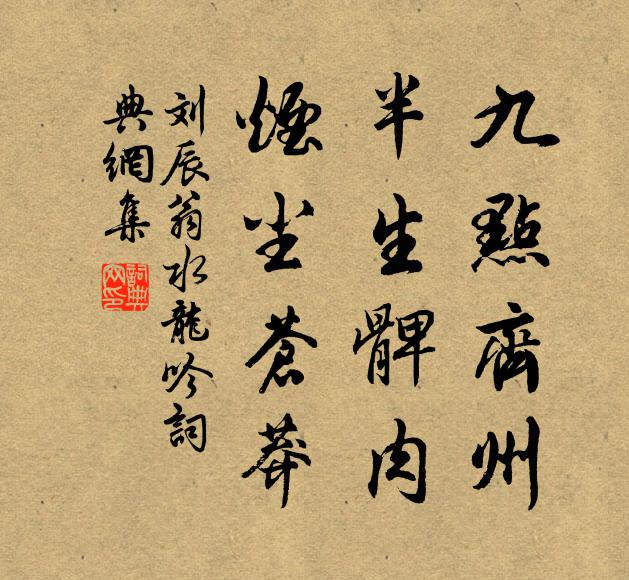 九點齊州
半生髀肉
煙尘蒼莽
刘辰翁水龍吟詞
典網集
詞典网印